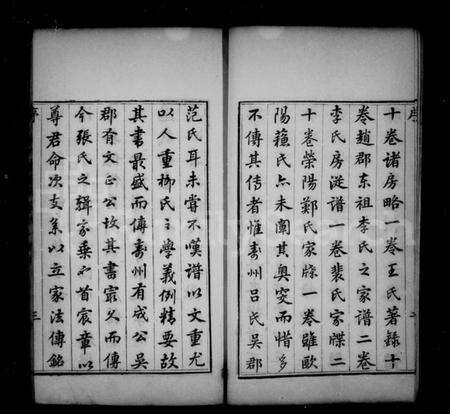 序
十卷諸房略一卷王氏著錄十
卷趙郡東祖李氏之家譜二卷
李氏房從譜一卷裴氏家牒二
十卷滎陽鄭氏家牒一卷雖歐
陽蘇氏亦未闡其奧突而惜多
不傳其傳者惟壽州呂氏吳郡
二
范氏耳未嘗不嘆譜以文重尤
以人重柳氏之學義例精要故
其書最盛而傳壽州有成公吳
郡有文正公故其書最久而傳
今張氏之輯家乘也首宸章以
尊君命次支系以立家法傳銘
序
三